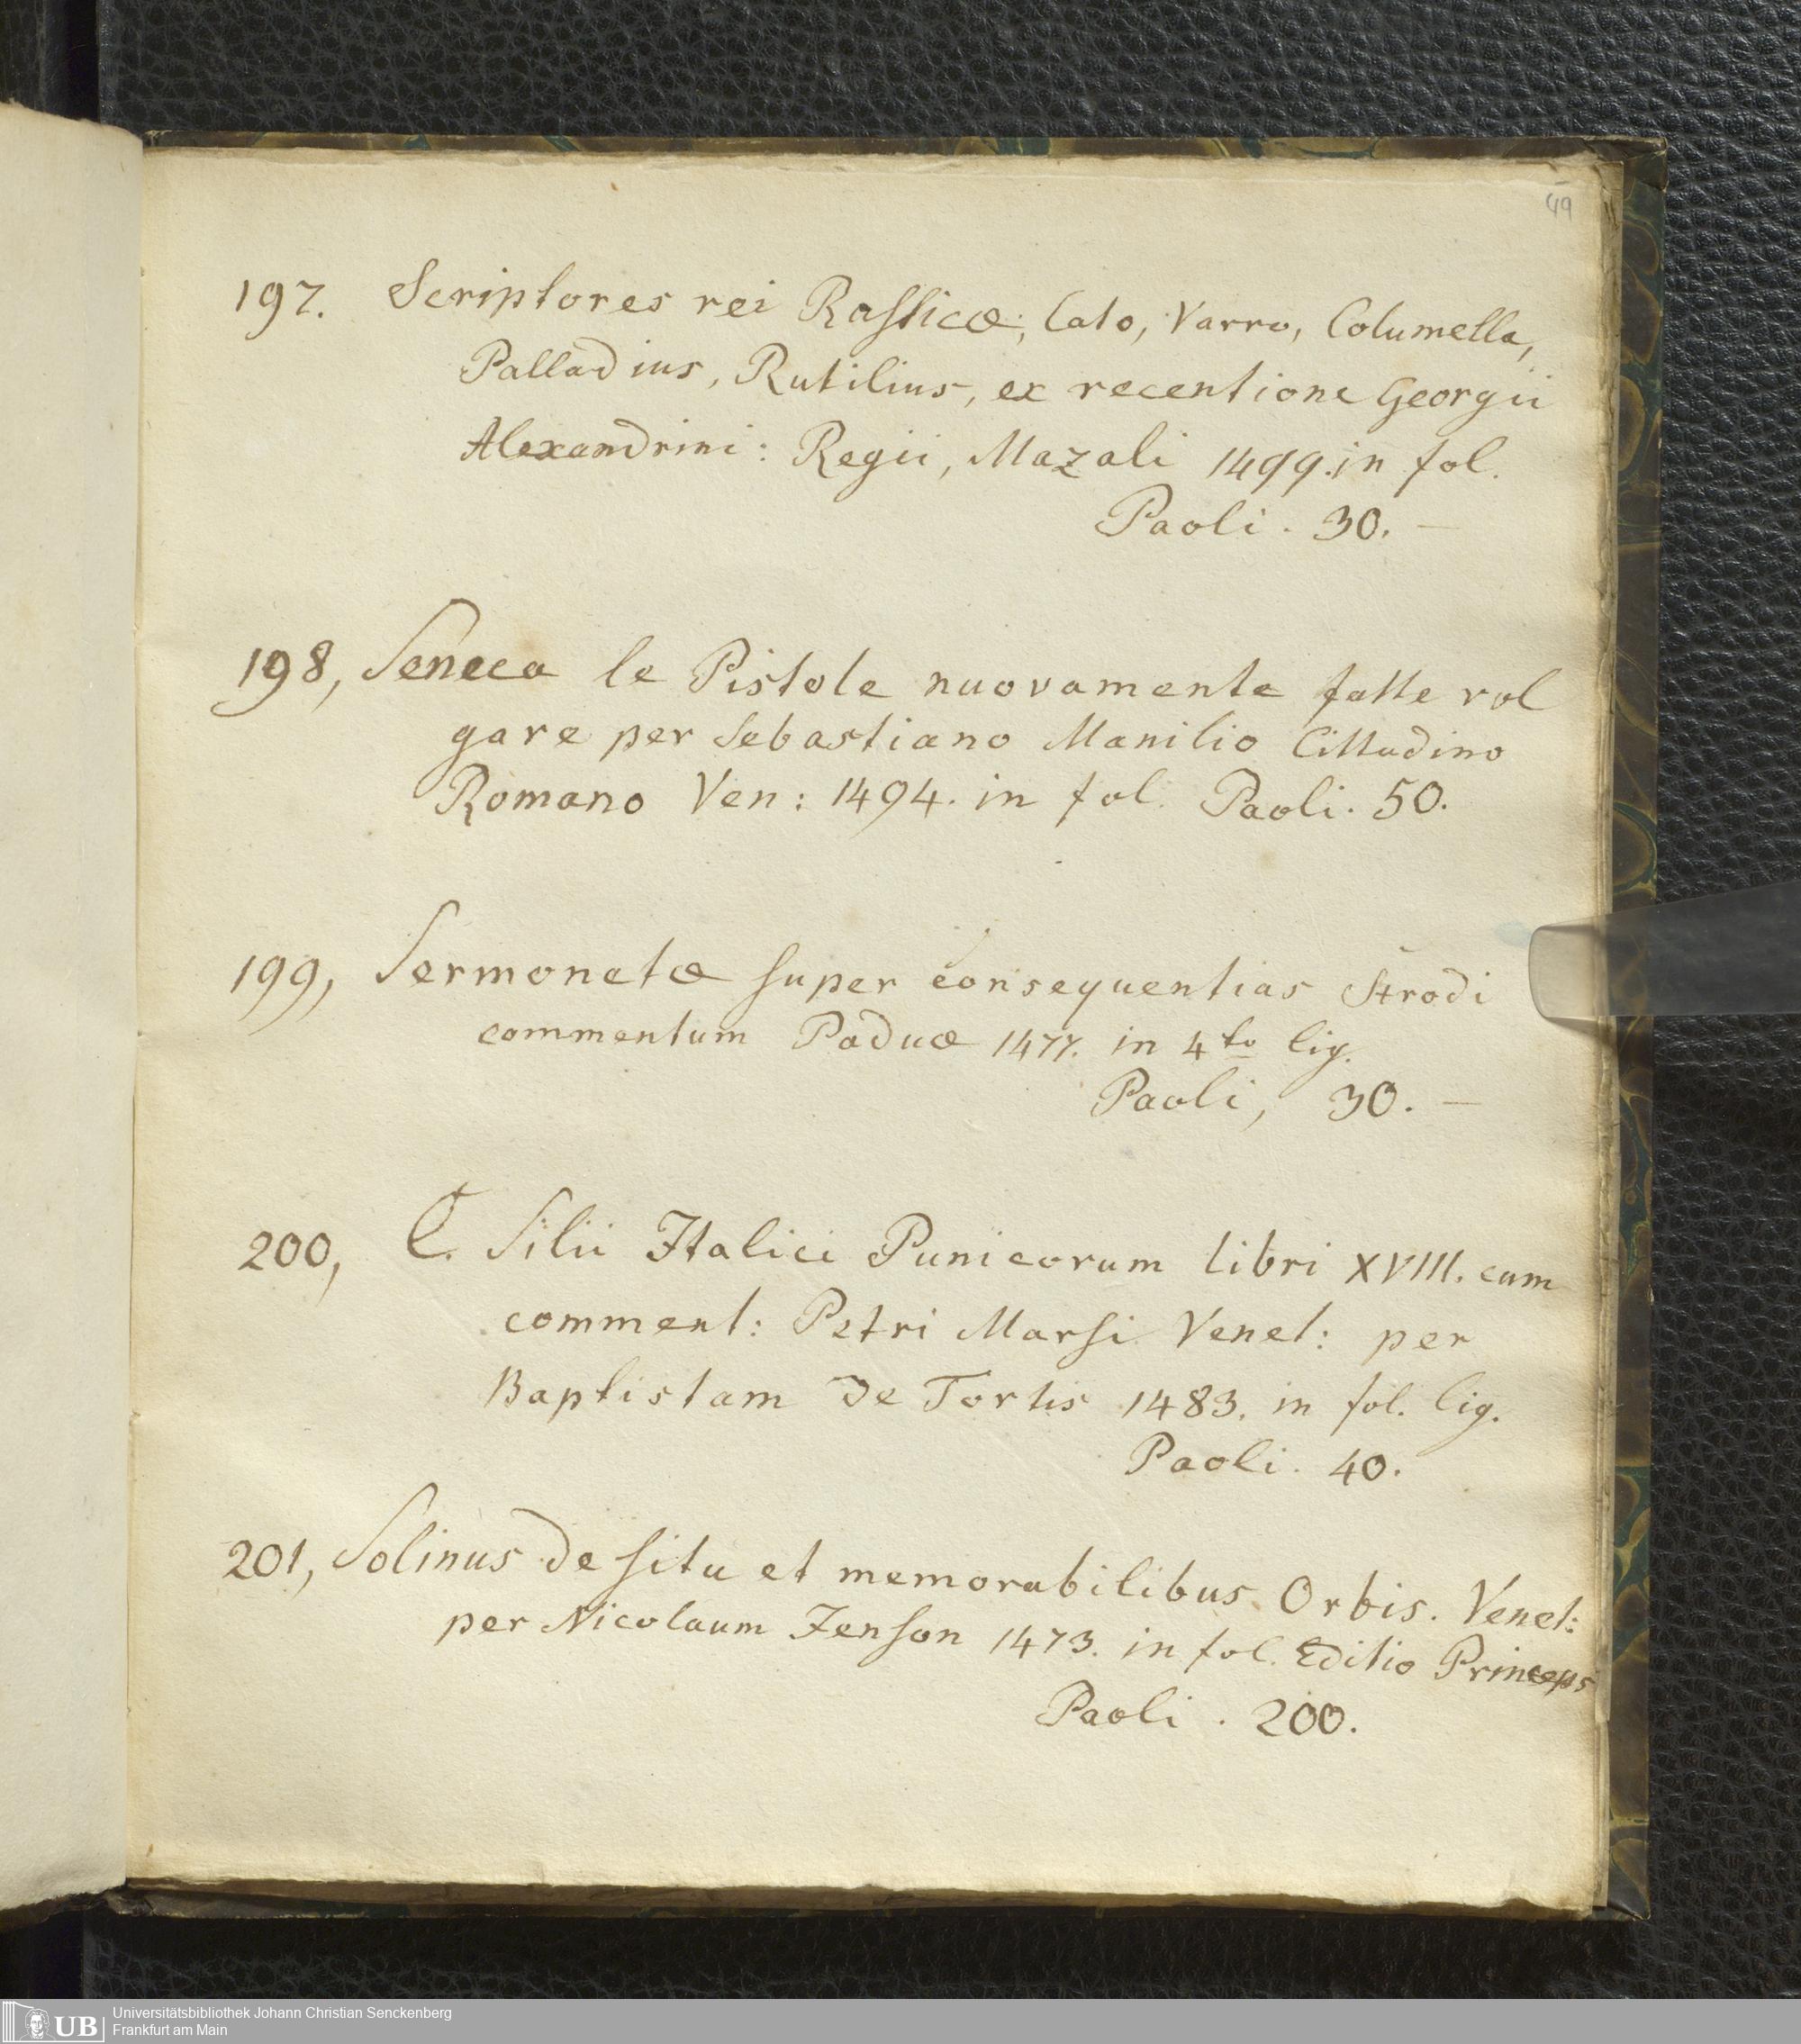 49
197. Scriptores rei Rasticæ; Cato, Varro, Columella,
Palladius, Rutilius, ex recentione Georgii
Alexandrini: Regii, Mazali 1499. in fol.
Paoli. 30. —
198, Seneca le Pistole nuovamente fatte vol
gare per Sebastiano Manilio Cittadino
Romano Ven: 1494. in fol. Paoli. 50.
199, Sermonetæ super consequentias Strodi
commentum Paduæ 1477. in 4to lig.
Paoli, 30. —
200, C. Silii Italici Punicorum libri XVIII. cum
comment: Petri Marsi Venet: per
Baptistam de Tortis 1483. in fol. lig.
Paoli. 40.
201, Solinus de situ et memorabilibus Orbis. Venet:
per Nicolaum Jenson 1473. in fol. Editio Princeps
Paoli. 200.
UB Universitätsbibliothek Johann Christian Senckenberg
Frankfurt am Main